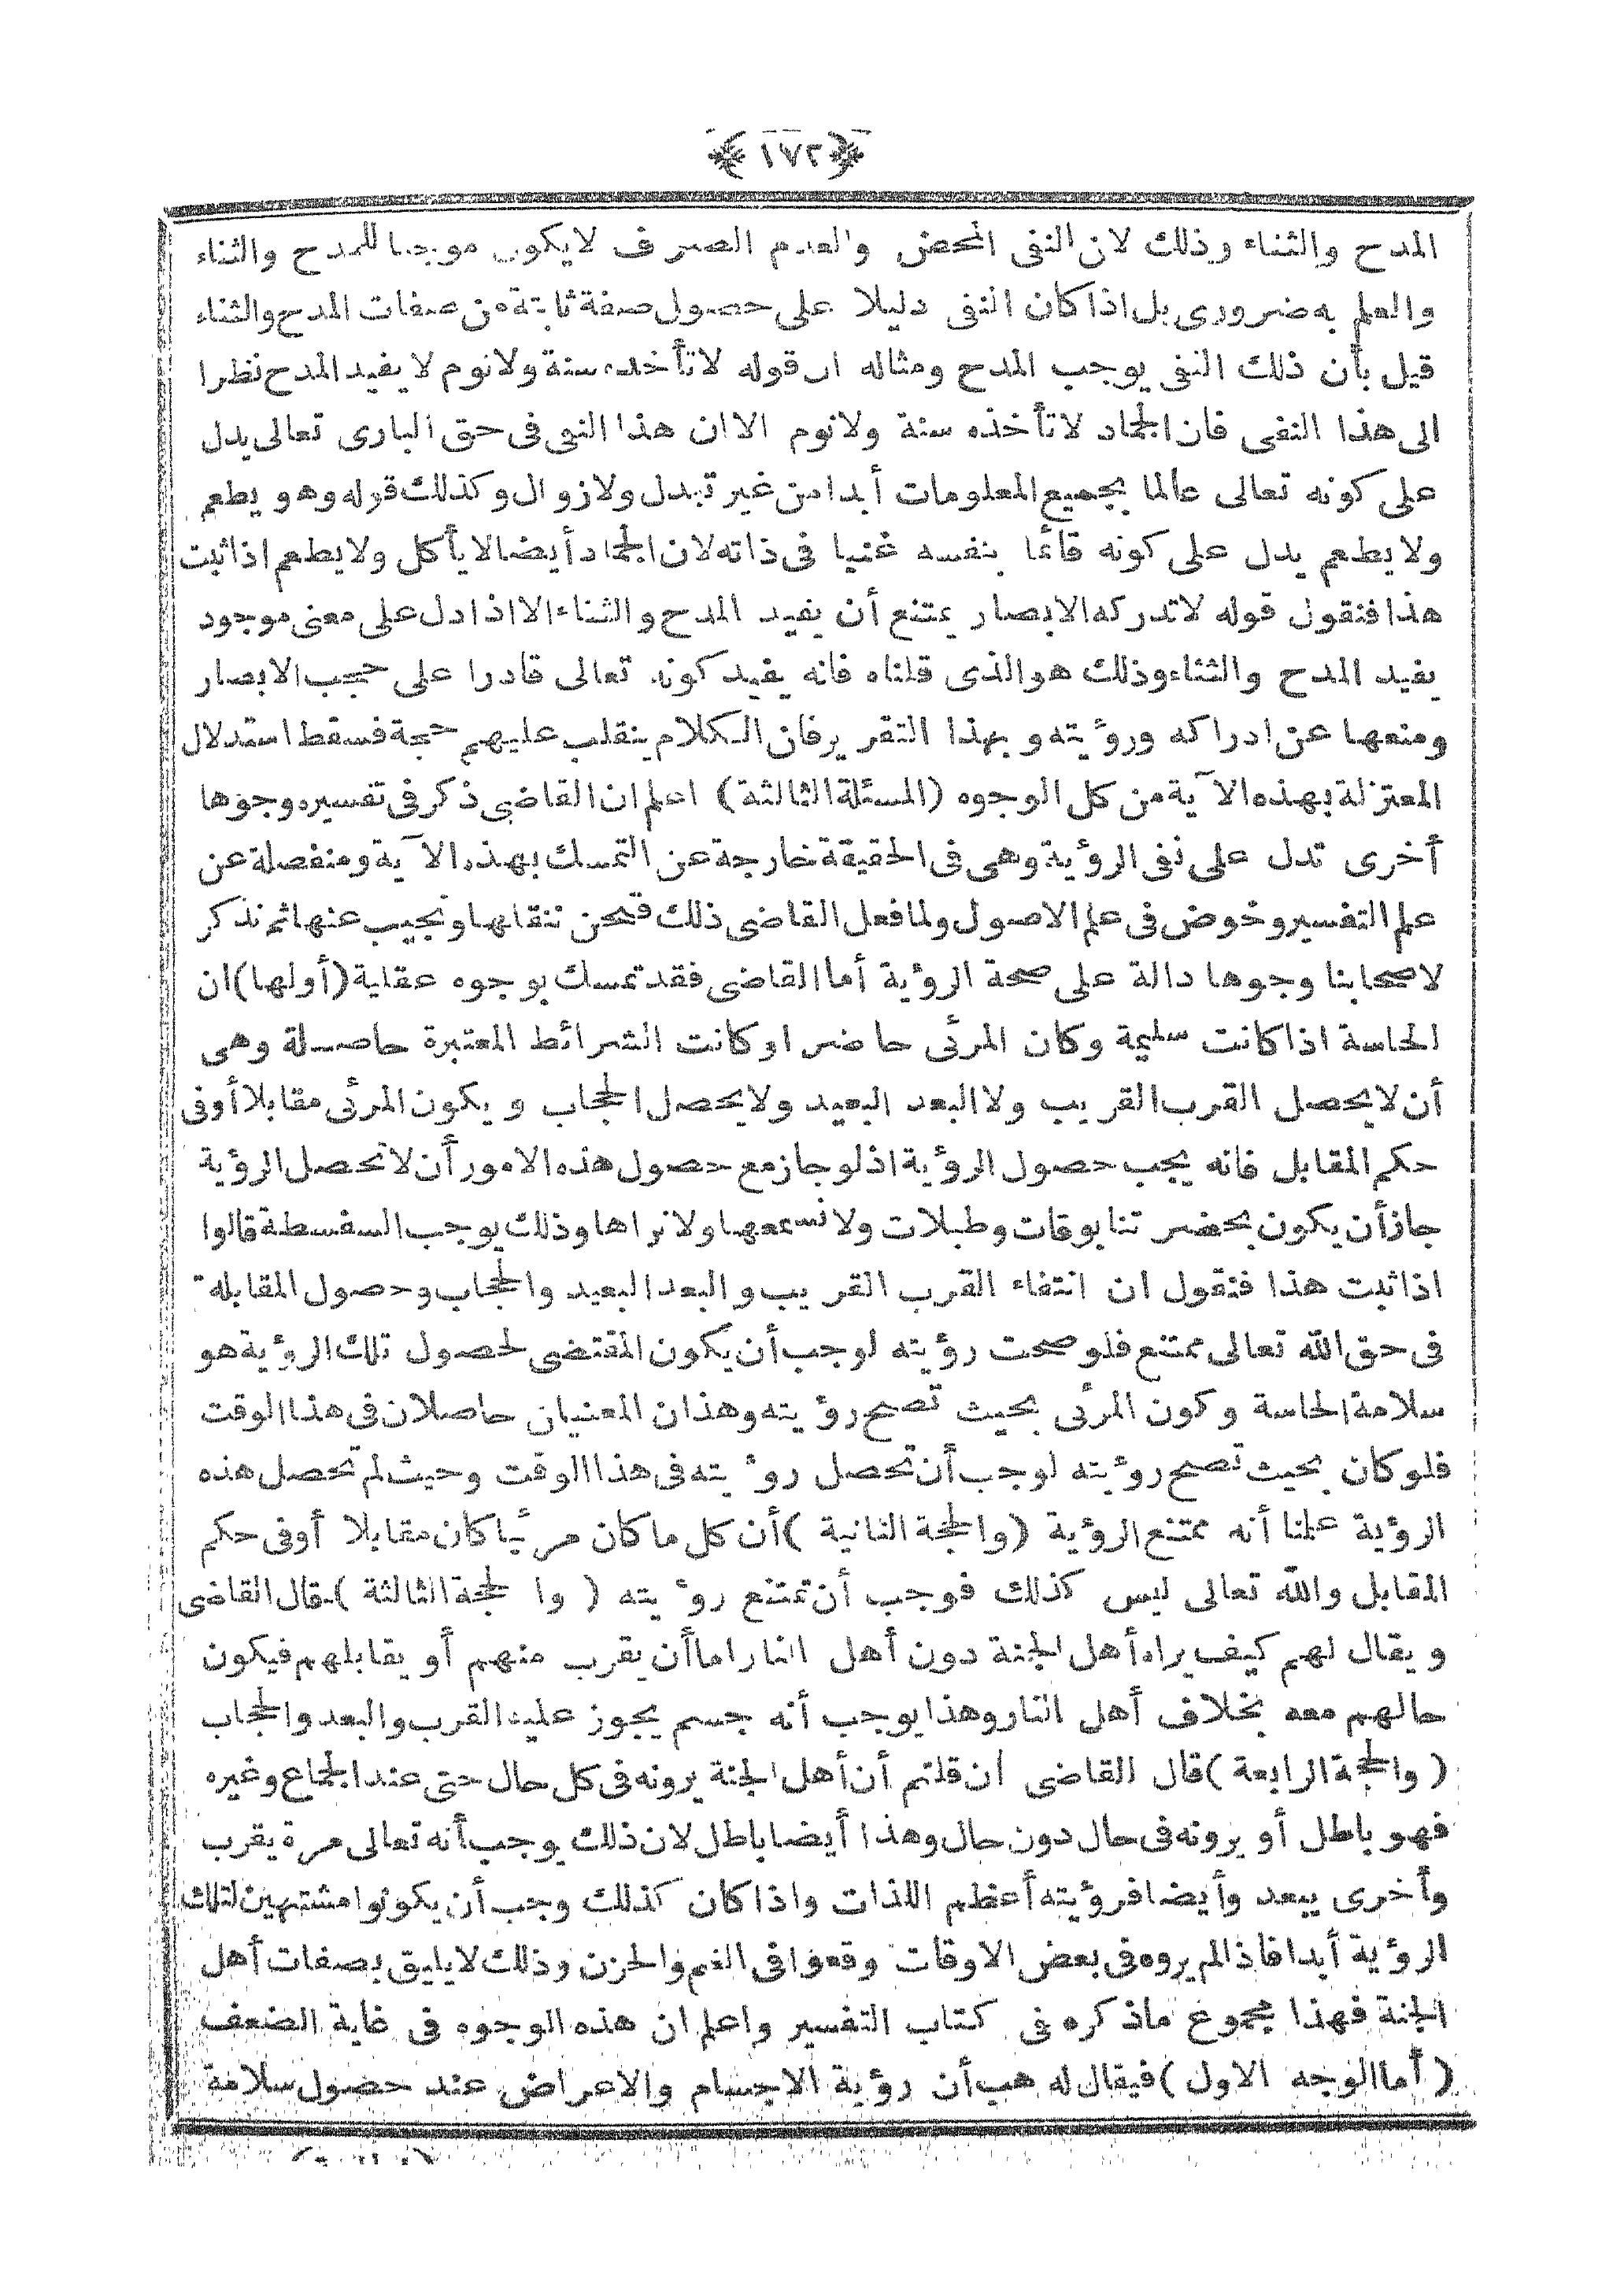 ﴿١٧٢﴾
المدح والثناء وذلك لان النفى المحض والعدم الصرف لايكون موجبا للمدح والثناء
والعلم به ضرورى بل اذا كان النفى دليلا على حصول صفة ثابتة من صفات المدح والثناء
قيل بأن ذلك النفى يوجب المدح ومثاله ان قوله لاتأخذه سنة ولانوم لا يفيد المدح نظرا
الى هذا النفى فان الجماد لاتأخذه سنة ولانوم الا ان هذا النفى فى حق البارى تعالى يدل
على كونه تعالى عالما بجميع المعلومات أبدا من غير تبدل ولازوال وكذلك قوله وهو يطعم
ولايطعم يدل على كونه قائما بنفسه غنيا فى ذاته لان الجماد أيضا لا يأكل ولا يطعم اذا ثبت
هذا فنقول قوله لاتدركه الابصار يمتنع أن يفيد المدح والثناء الا اذا دل على معنى موجود
يفيد المدح والثناء وذلك هو الذى قلناه فانه يفيد كونه تعالى قادرا على حجب الابصار
ومنعها عن ادراكه ورؤيته وبهذا التقرير فان الكلام ينقلب عليهم حجة فسقط استدلال
المعتزلة بهذه الآية من كل الوجوه (المسئلة الثالثة) اعلم ان القاضى ذكر فى تفسيره وجوها
أخرى تدل على نفى الرؤية وهى فى الحقيقة خارجة عن التمسك بهذه الآية ومنفصلة عن
علم التفسير وخوض فى علم الاصول ولما فعل القاضى ذلك فنحن ننقلها ونجيب عنها ثم نذكر
لاصحابنا وجوها دالة على صحة الرؤية أما القاضى فقد تمسك بوجوه عقلية (أولها) ان
الحاسة اذا كانت سليمة وكان المرئى حاضرا وكانت الشرائط المعتبرة حاصلة وهى
أن لا يحصل القرب القريب ولا البعد البعيد ولا يحصل الحجاب ويكون المرئى مقابلا أوفى
حكم المقابل فانه يجب حصول الرؤية اذ لو جاز مع حصول هذه الامور أن لا تحصل الرؤية
جاز أن يكون بحضرتنا بوقات وطبلات ولا نسمعها ولا نراها وذلك يوجب السفسطة قالوا
اذا ثبت هذا فنقول ان انتفاء القرب القريب والبعد البعيد والحجاب وحصول المقابلة
فى حق الله تعالى ممتنع فلو صحت رؤيته لوجب أن يكون المقتضى لحصول تلك الرؤية هو
سلامة الحاسة وكون المرئى بحيث تصح رؤيته وهذان المعنيان حاصلان فى هذا الوقت
فلو كان بحيث تصح رؤيته لوجب أن تحصل رؤيته فى هذا الوقت وحيث لم تحصل هذه
الرؤية علمنا أنه ممتنع الرؤية (والحجة الثانية) أن كل ما كان مرئيا كان مقابلا أوفى حكم
المقابل والله تعالى ليس كذلك فوجب أن تمتنع رؤيته (والحجة الثالثة) قال القاضى
ويقال لهم كيف يراه أهل الجنة دون أهل النار اما أن يقرب منهم أو يقابلهم فيكون
حالهم معه بخلاف أهل النار وهذا يوجب أنه جسم يجوز عليه القرب والبعد والحجاب
(والحجة الرابعة) قال القاضى ان قلتم أن أهل الجنة يرونه فى كل حال حتى عند الجماع وغيره
فهو باطل أو يرونه فى حال دون حال وهذا أيضا باطل لان ذلك يوجب أنه تعالى مرة يقرب
وأخرى يبعد وأيضا فرؤيته أعظم اللذات واذا كان كذلك وجب أن يكونوا مشتهين لتلك
الرؤية أبدا فاذا لم يروه فى بعض الاوقات وقعوا فى الغم والحزن وذلك لا يليق بصفات أهل
الجنة فهذا مجموع ماذكره فى كتاب التفسير واعلم ان هذه الوجوه فى غاية الضعف
(أما الوجه الاول) فيقال له هب أن رؤية الاجسام والاعراض عند حصول سلامة